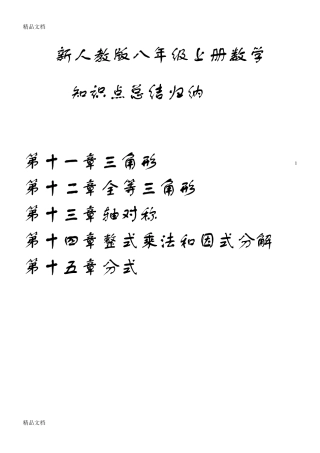 精品文档
新人教版八年级上册数学
知识点总结归纳
1
第十一章三角形
第十二章全等三角形
第十三章轴对称
第十四章整式乘法和因式分解
第十五章分式
精品文档